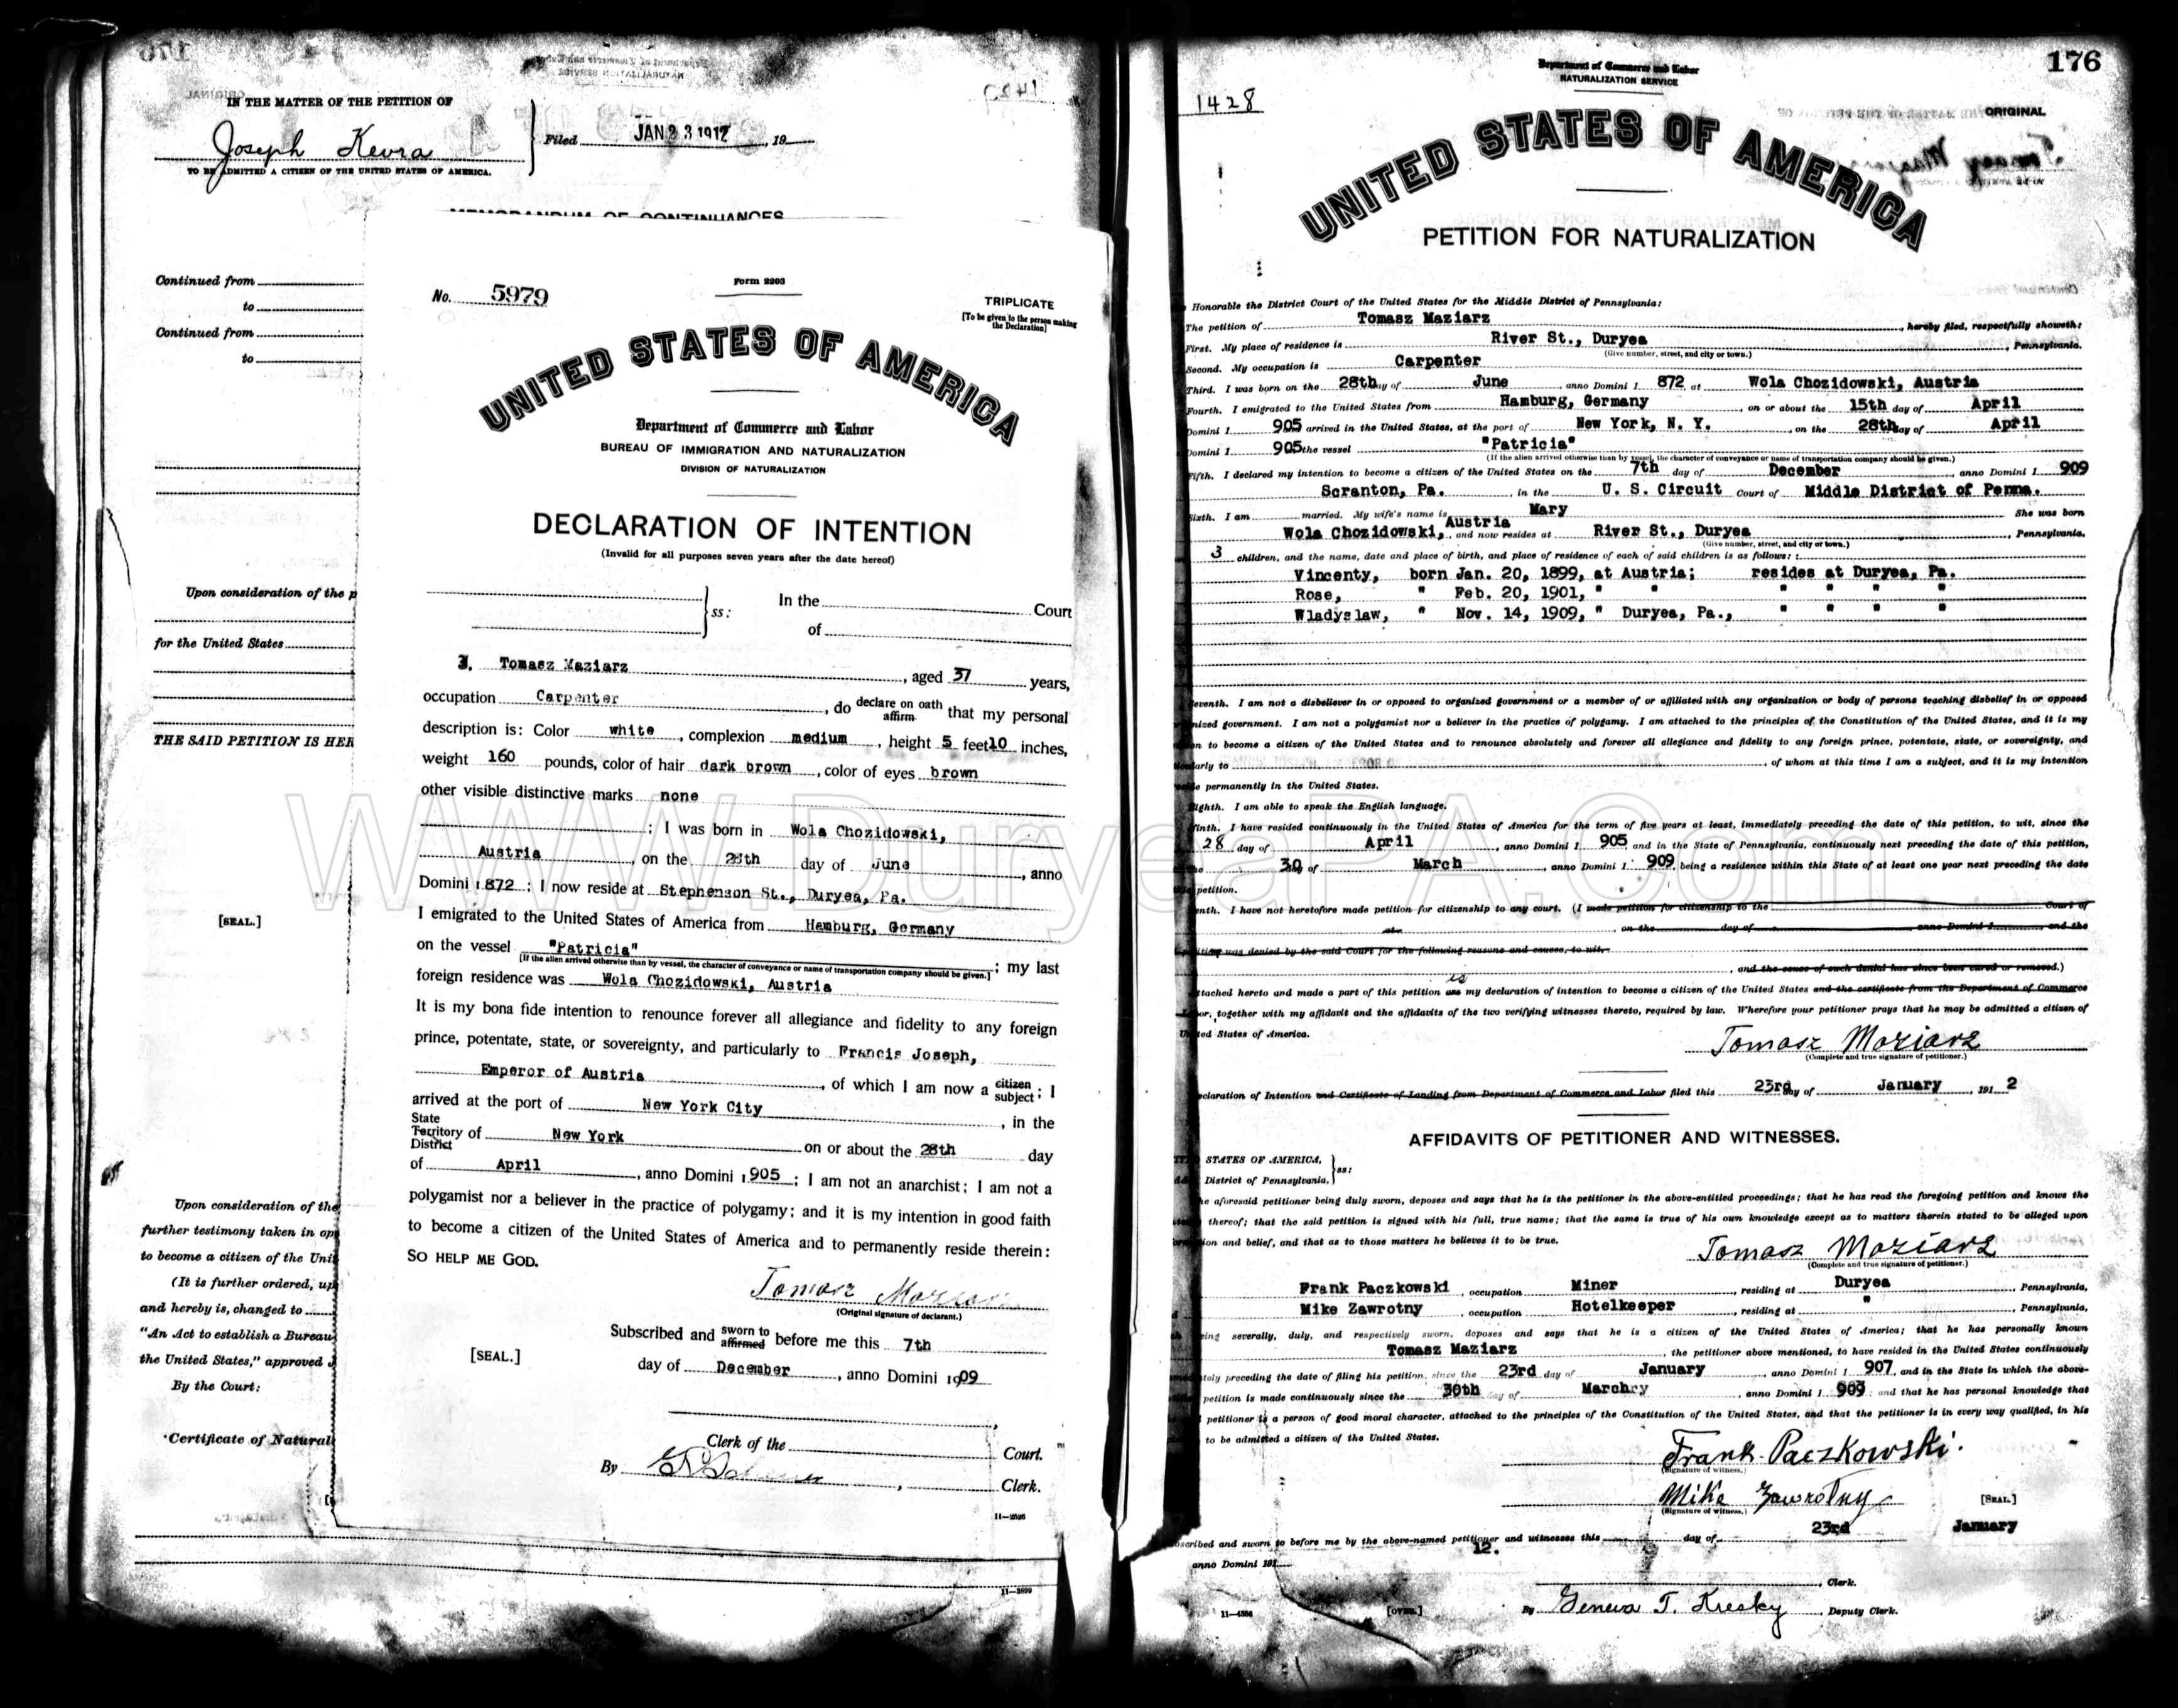 IN THE MATTER OF THE PETITION OF
Joseph Kevra
TO BE ADMITTED A CITIZEN OF THE UNITED STATES OF AMERICA.
Filed JAN 23 1912, 19
MEMORANDUM OF CONTINUANCES
Continued from
to
Continued from
to
Upon consideration of the p
for the United States
THE SAID PETITION IS HER
[SEAL.]
Upon consideration of the
further testimony taken in op
to become a citizen of the Uni
(It is further ordered, up
and hereby is, changed to
"An Act to establish a Bureau
the United States," approved J
By the Court:
Certificate of Natural
11—3899
No. 5979
Form 2203
TRIPLICATE
[To be given to the person making
the Declaration]
UNITED STATES OF AMERICA
Department of Commerce and Labor
BUREAU OF IMMIGRATION AND NATURALIZATION
DIVISION OF NATURALIZATION
DECLARATION OF INTENTION
(Invalid for all purposes seven years after the date hereof)
ss: In the Court
of
I, Tomasz Maziarz, aged 37 years,
occupation Carpenter, do declare on oath affirm that my personal
description is: Color white, complexion medium, height 5 feet 10 inches,
weight 160 pounds, color of hair dark brown, color of eyes brown
other visible distinctive marks none
; I was born in Wola Chozidowski,
Austria, on the 28th day of June, anno
Domini 1872; I now reside at Stephenson St., Duryea, Pa.
I emigrated to the United States of America from Hamburg, Germany
on the vessel "Patricia"; my last
[If the alien arrived otherwise than by vessel, the character of conveyance or name of transportation company should be given.]
foreign residence was Wola Chozidowski, Austria
It is my bona fide intention to renounce forever all allegiance and fidelity to any foreign
prince, potentate, state, or sovereignty, and particularly to Francis Joseph,
Emperor of Austria, of which I am now a citizen subject; I
arrived at the port of New York City, in the
State Territory District of New York on or about the 28th day
of April, anno Domini 1905; I am not an anarchist; I am not a
polygamist nor a believer in the practice of polygamy; and it is my intention in good faith
to become a citizen of the United States of America and to permanently reside therein:
SO HELP ME GOD.
Tomasz Maziarz
(Original signature of declarant.)
Subscribed and sworn to affirmed before me this 7th
[SEAL.]
day of December, anno Domini 1909
Clerk of the Court.
By Clerk.
WWW.DuryeaPA.Com
176
Department of Commerce and Labor
NATURALIZATION SERVICE
1428
ORIGINAL
UNITED STATES OF AMERICA
PETITION FOR NATURALIZATION
Honorable the District Court of the United States for the Middle District of Pennsylvania:
The petition of Tomasz Maziarz, hereby filed, respectfully showeth:
First. My place of residence is River St., Duryea, Pennsylvania.
(Give number, street, and city or town.)
Second. My occupation is Carpenter
Third. I was born on the 28th day of June anno Domini 1872 at Wola Chozidowski, Austria
Fourth. I emigrated to the United States from Hamburg, Germany, on or about the 15th day of April
Domini 1905 arrived in the United States, at the port of New York, N. Y., on the 28th day of April
Domini 1905 the vessel "Patricia"
(If the alien arrived otherwise than by vessel, the character of conveyance or name of transportation company should be given.)
Fifth. I declared my intention to become a citizen of the United States on the 7th day of December anno Domini 1909
Scranton, Pa. in the U. S. Circuit Court of Middle District of Penna.
Sixth. I am married. My wife's name is Mary She was born
Wola Chozidowski, Austria and now resides at River St., Duryea, Pennsylvania.
(Give number, street, and city or town.)
3 children, and the name, date and place of birth, and place of residence of each of said children is as follows:
Vincenty, born Jan. 20, 1899, at Austria; resides at Duryea, Pa.
Rose, " Feb. 20, 1901, " " " " " "
Wladyslaw, " Nov. 14, 1909, " Duryea, Pa., " " " "
Seventh. I am not a disbeliever in or opposed to organized government or a member of or affiliated with any organization or body of persons teaching disbelief in or opposed
nized government. I am not a polygamist nor a believer in the practice of polygamy. I am attached to the principles of the Constitution of the United States, and it is my
on to become a citizen of the United States and to renounce absolutely and forever all allegiance and fidelity to any foreign prince, potentate, state, or sovereignty, and
larly to, of whom at this time I am a subject, and it is my intention
permanently in the United States.
Eighth. I am able to speak the English language.
Ninth. I have resided continuously in the United States of America for the term of five years at least, immediately preceding the date of this petition, to wit, since the
28 day of April, anno Domini 1905 and in the State of Pennsylvania, continuously next preceding the date of this petition,
30 day of March, anno Domini 1909, being a residence within this State of at least one year next preceding the date
petition.
Tenth. I have not heretofore made petition for citizenship to any court. (I made petition for citizenship to the Court of
at, on the day of anno Domini 1 and the
petition was denied by the said Court for the following reasons and causes, to wit:
, and the cause of such denial has since been cured or removed.)
is
ttached hereto and made a part of this petition are my declaration of intention to become a citizen of the United States and the certificate from the Department of Commerce
Labor, together with my affidavit and the affidavits of the two verifying witnesses thereto, required by law. Wherefore your petitioner prays that he may be admitted a citizen of
United States of America.
Tomasz Maziarz
(Complete and true signature of petitioner.)
claration of Intention and Certificate of Landing from Department of Commerce and Labor filed this 23rd day of January, 1912
AFFIDAVITS OF PETITIONER AND WITNESSES.
STATES OF AMERICA,
District of Pennsylvania, ss:
he aforesaid petitioner being duly sworn, deposes and says that he is the petitioner in the above-entitled proceedings; that he has read the foregoing petition and knows the
thereof; that the said petition is signed with his full, true name; that the same is true of his own knowledge except as to matters therein stated to be alleged upon
ion and belief, and that as to those matters he believes it to be true.
Tomasz Maziarz
(Complete and true signature of petitioner.)
Frank Paczkowski, occupation Miner, residing at Duryea, Pennsylvania,
Mike Zawrotny, occupation Hotelkeeper, residing at ", Pennsylvania,
ing severally, duly, and respectively sworn, deposes and says that he is a citizen of the United States of America; that he has personally known
Tomasz Maziarz, the petitioner above mentioned, to have resided in the United States continuously
tely preceding the date of filing his petition, since the 23rd day of January anno Domini 1907, and in the State in which the above-
petition is made continuously since the 30th day of March, anno Domini 1909; and that he has personal knowledge that
petitioner is a person of good moral character, attached to the principles of the Constitution of the United States, and that the petitioner is in every way qualified, in his
to be admitted a citizen of the United States.
Frank Paczkowski.
(Signature of witness.)
Mike Zawrotny
(Signature of witness.)
[SEAL.]
scribed and sworn to before me by the above-named petitioner and witnesses this 23rd day of January
anno Domini 1912.
, Clerk.
[OVER.]
By Geneva T. Kresky, Deputy Clerk.